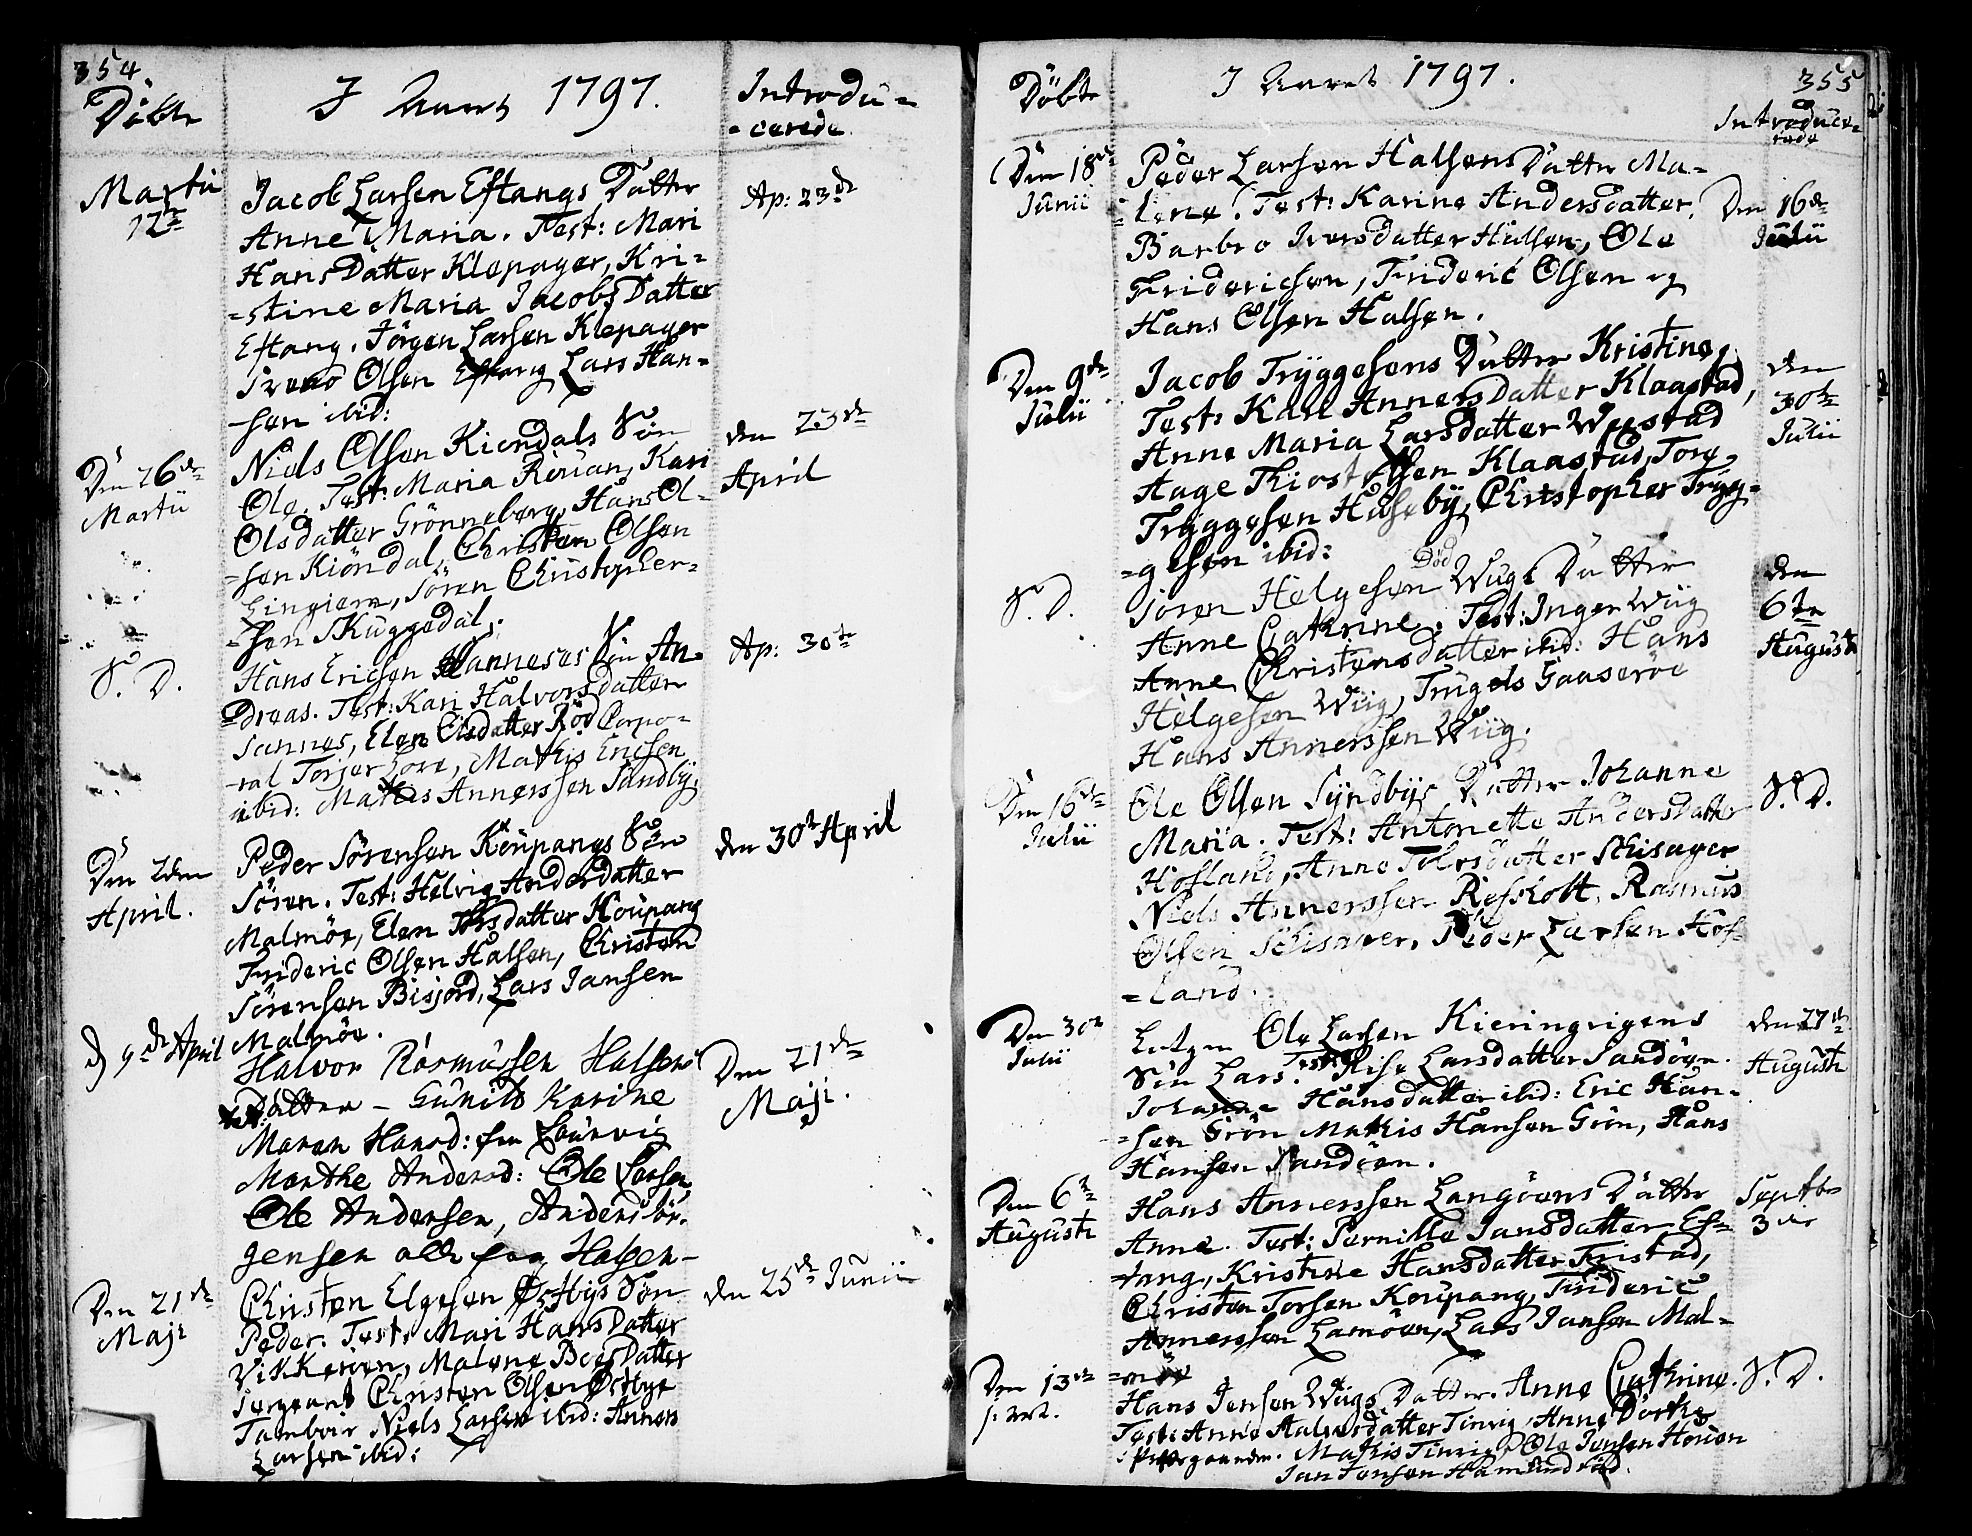 354.
Döbte
I Aaret 1797.
Introdu-
-cerede.
Martii
12te
Jacob Larsen Eftangs Datter
Anne Maria. Test: Mari
Hans Datter Klepager, Kri-
-stine Maria Jacobs Datter
Eftang. Jörgen Larsen Klepager
Svend Olsen Eftang Lars Han-
-sen ibid:
Ap: 23de
Den 26de
Martii
Niels Olsen Kiendals Sön
Ole. Test: Maria Kari
Olsdatter Grönneberg, Hans Ol-
-sen Kiöndal, Christen Olsen
Lingiem, Sören Christopher-
-sen Skuggedal.
den 23de
April
S. D.
Hans Ericsen Sanneses Sön An-
-dreas. Test: Kari Halvorsdatter
Sannes, Elen Olsdatter Röd Corpo-
-ral Torjer Mathis Ericsen
ibid: Mathis Annerssen Sandby.
Ap: 30te
Den 2den
April.
Peder Sörensen Koupangs Sön
Sören. Test: Helvig Andersdatter
Malmöe, Elen Torsdatter Koupang
Frideric Olsen Halsen, Christen
Sörensen Bisjord, Lars Jansen
Malmöe.
den 30te April
d 9de April
Halvor Rasmussen Halsens
Datter - Gunild Karine
Maren Hansd: fra Laurvig
Marthe Andersd: Ole Larsen
Ole Andersen, Anders Jör-
gensen alle fra Halsen-
Den 21de
Maji.
Den 21de
Maji
Christen Elgesen Østbys Sön
Peder. Test: Mari Hans Datter
Vikkerien, Malene Boes Datter
Sergeant Christen Olsen Østbye
Tamboir Niels Larsen ibid: Anners
Larsen ibid:
den 25de Junii
355
Döbte
I Aaret 1797.
Introduce-
rede
Den 18de
Junii
Peder Larsen Halsens Datter Ma-
-lene. Test: Karine Andersdatter,
Barbro Iversdatter Halsen, Ole
Fridericsen, Frideric Olsen og
Hans Olsen Halsen.
Den 16de
Julii
Den 9de
Julii
Jacob Tryggesens Datter Kristine,
Test: Kari Anners Datter Klaastad,
Anne Maria Larsdatter Weestad
Aage Thiostelsen Klaastad, Torg
Tryggesen Huseby, Christopher Tryg-
-gesen ibid:
den
30te
Julii
S. D.
Död
Sören Helgesen Wiigs Datter
Anne Cathrine. Test: Inger Wiig
Anne Christensdatter ibid: Hans
Helgesen Wiig, Trugels Gaaseröe
Hans Annerssen Wiig.
den
6te
Augusti
Den 16de
Julii
Ole Olsen Syndbys Datter Johanne
Maria. Test: Antonette Andersdatter
Hofland, Anne Tolvsdatter Schisager
Niels Annerssen Refsholt, Rasmus
Olsen Schisager, Peder Larsen Hof-
-land.
S. D.
Den 30te
Julii
Ole Larsen Kieringvigens
Sön Lars. Test: Larsdatter Sandöen.
Johanne Hansdatter ibid: Eric Han-
-sen Grön Mathis Hansen Grön, Hans
Hansen Sandöen.
den 27de
Augusti
Den 6te
Augusti
Hans Annerssen Langöens Datter
Anne. Test: Pernille Jansdatter Ef-
-tang, Kristine Hansdatter
Christen Torsen Koupang, Frideric
Annerssen Lamöen, Lars Jansen Mal-
-möe
Septbr
3die
Den 13de
Hans Jensen Wiigs Datter. Anne Cathrine.
Test: Anne Halvorsdatter Tinvig, Anne Dorthe
Mathis Tinvig, Ole Jensen
Jan Jensen
S. D.